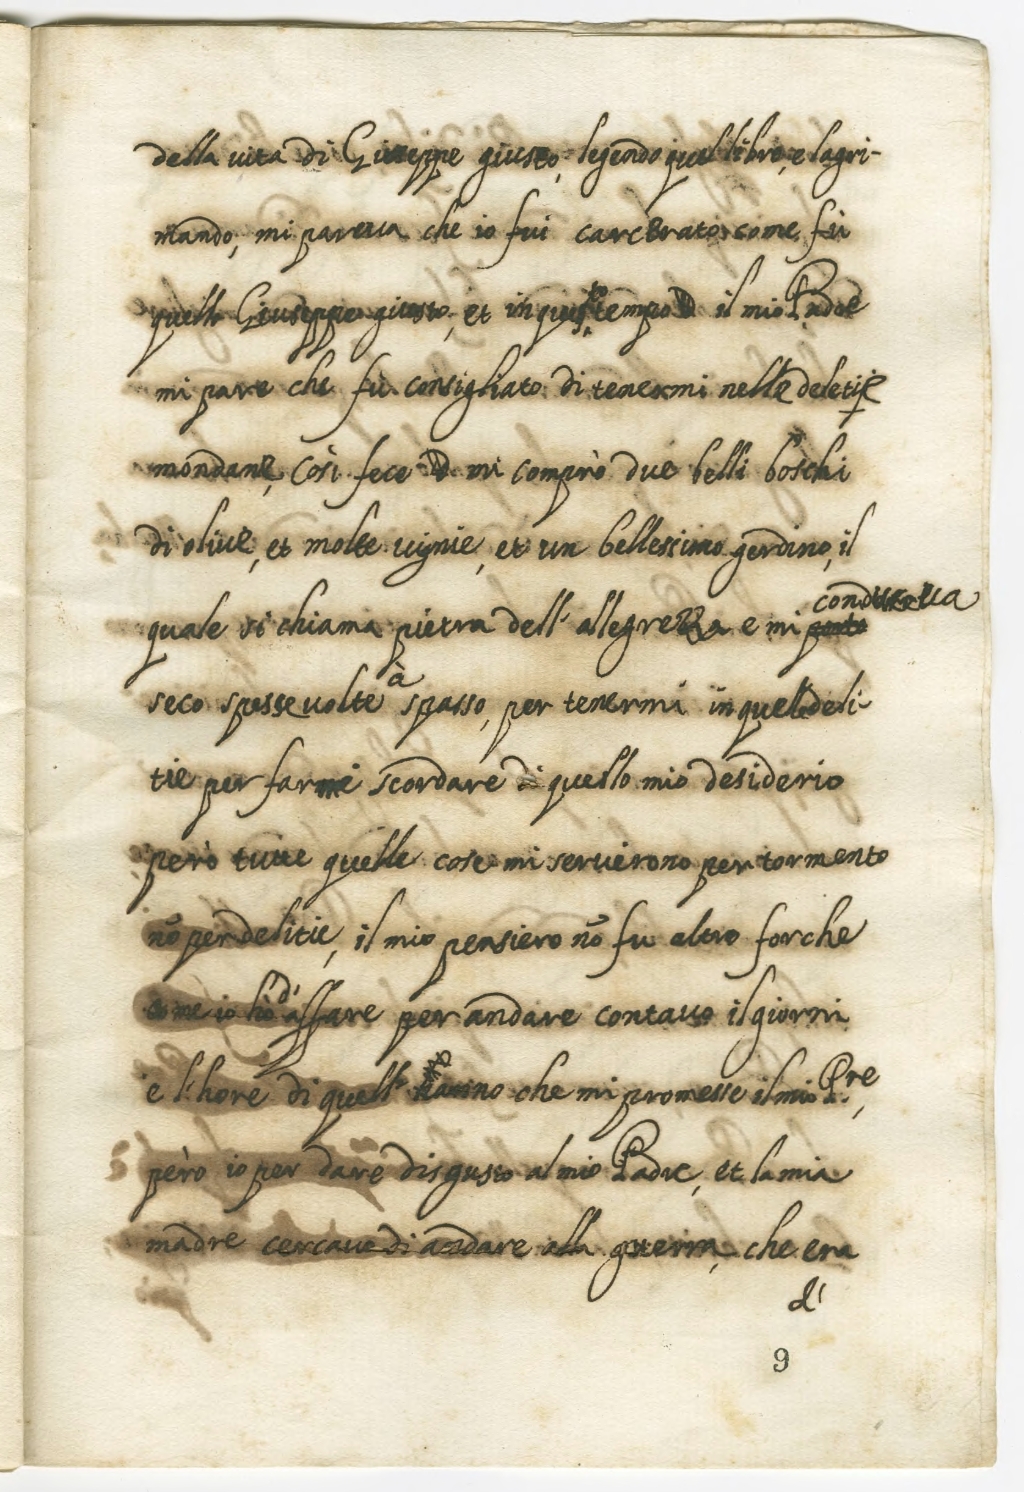 della vita di Giuseppe giusto, legendo quel libro, e lagri-
mando, mi pareva che io fui carcerato come fù
quello Giuseppe giusto, et in questo tempo il mio Padre
mi pare che fù consigliato di tenermi nelle deletie
mondane, così fece mi comprò due belli boschi
di olive, et molte vignie, et un bellessimo gerdino, il
quale si chiama pietra dell' allegrezza e mi conduceva
seco spesse volte à spasso, per tenermi in quelle deli-
tie per farme scordare di quello mio desiderio
però tutte quelle cose mi servirono per tormento
nõ per delitie, il mio pensiero nõ fu altro forche
come io hò d' affare per andare contavo il giorni
e l' hore di quell' che mi promesse il mio P.re,
però io per dare disgusto al mio Padre, et la mia
madre cercave di andare alla guerra, che era
d'
9